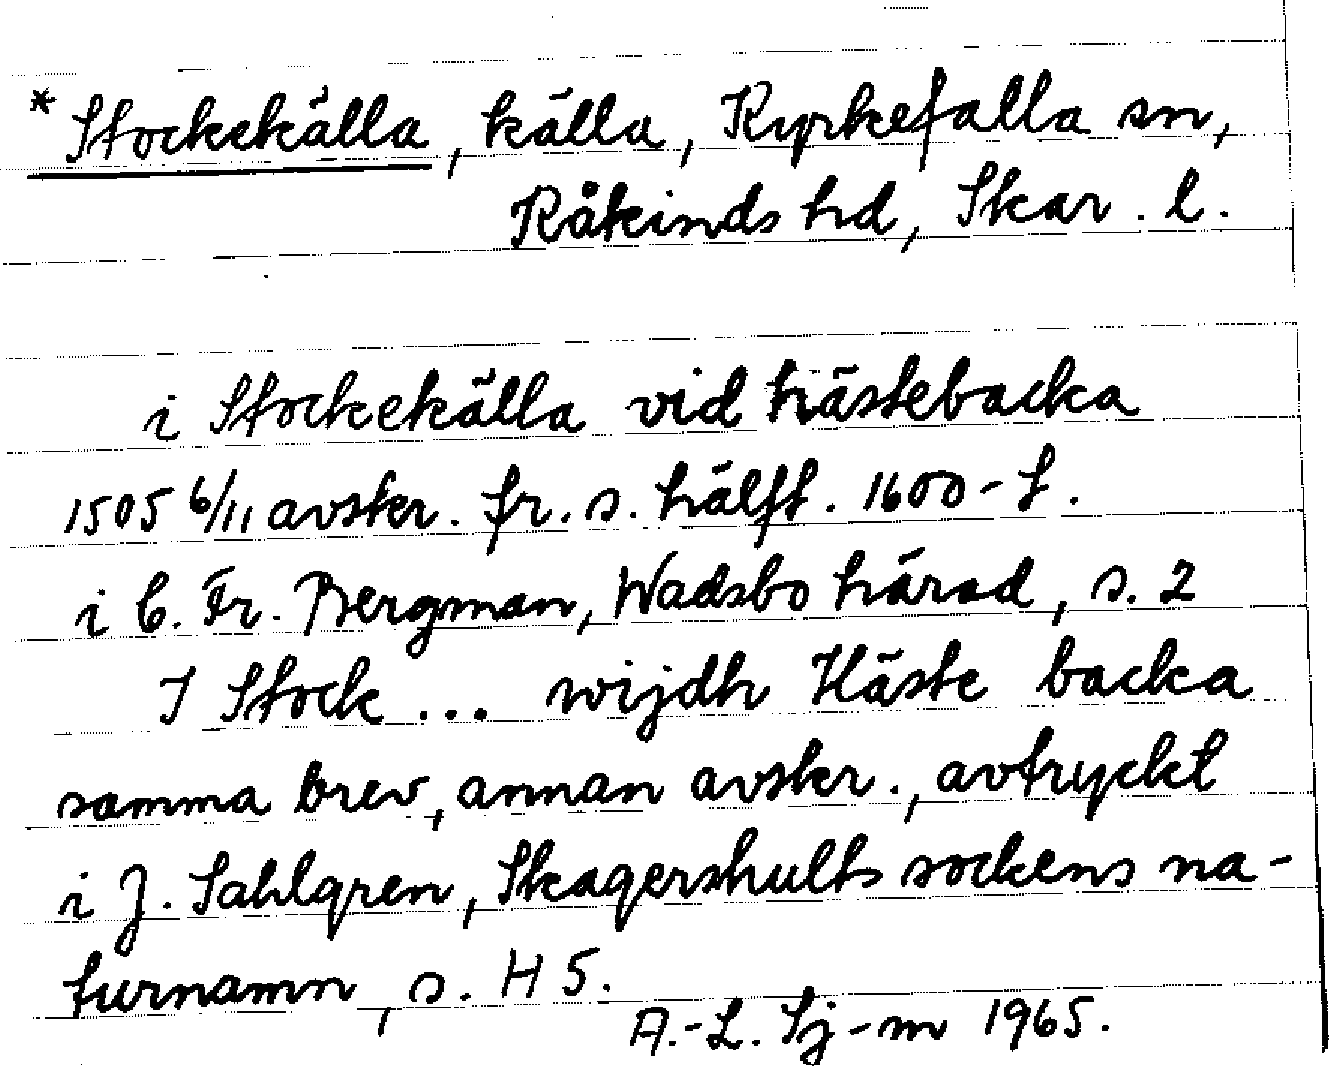 * Stockekälla, källa, Kyrkefalla sn,
Kåkinds hd, Skar. l.
i Stockekälla vid hästebacka
1505 6/11 avskr. fr. s. hälft. 1600-t.
i C. Fr. Bergman, Wadsbo härad, s. 2
I Stock... wijdh Häste backa
samma brev, annan avskr., avtryckt
i J. Sahlgren, Skagershults sockens na-
turnamn, s. H 5.
A.-L. Sj-m 1965.